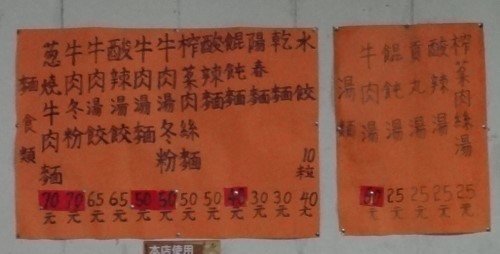 麵食類
蔥燒牛肉麵 70元
牛肉冬粉 70元
牛肉湯餃 65元
酸辣湯餃 65元
牛肉湯麵 50元
牛肉湯冬粉 50元
榨菜肉絲麵 50元
酸辣麵 50元
餛飩麵 元
陽春麵 30元
乾麵 30元
水餃 10粒 40元
湯
牛肉湯 元
餛飩湯 25元
貢丸湯 25元
酸辣湯 25元
榨菜肉絲湯 25元
本店使用